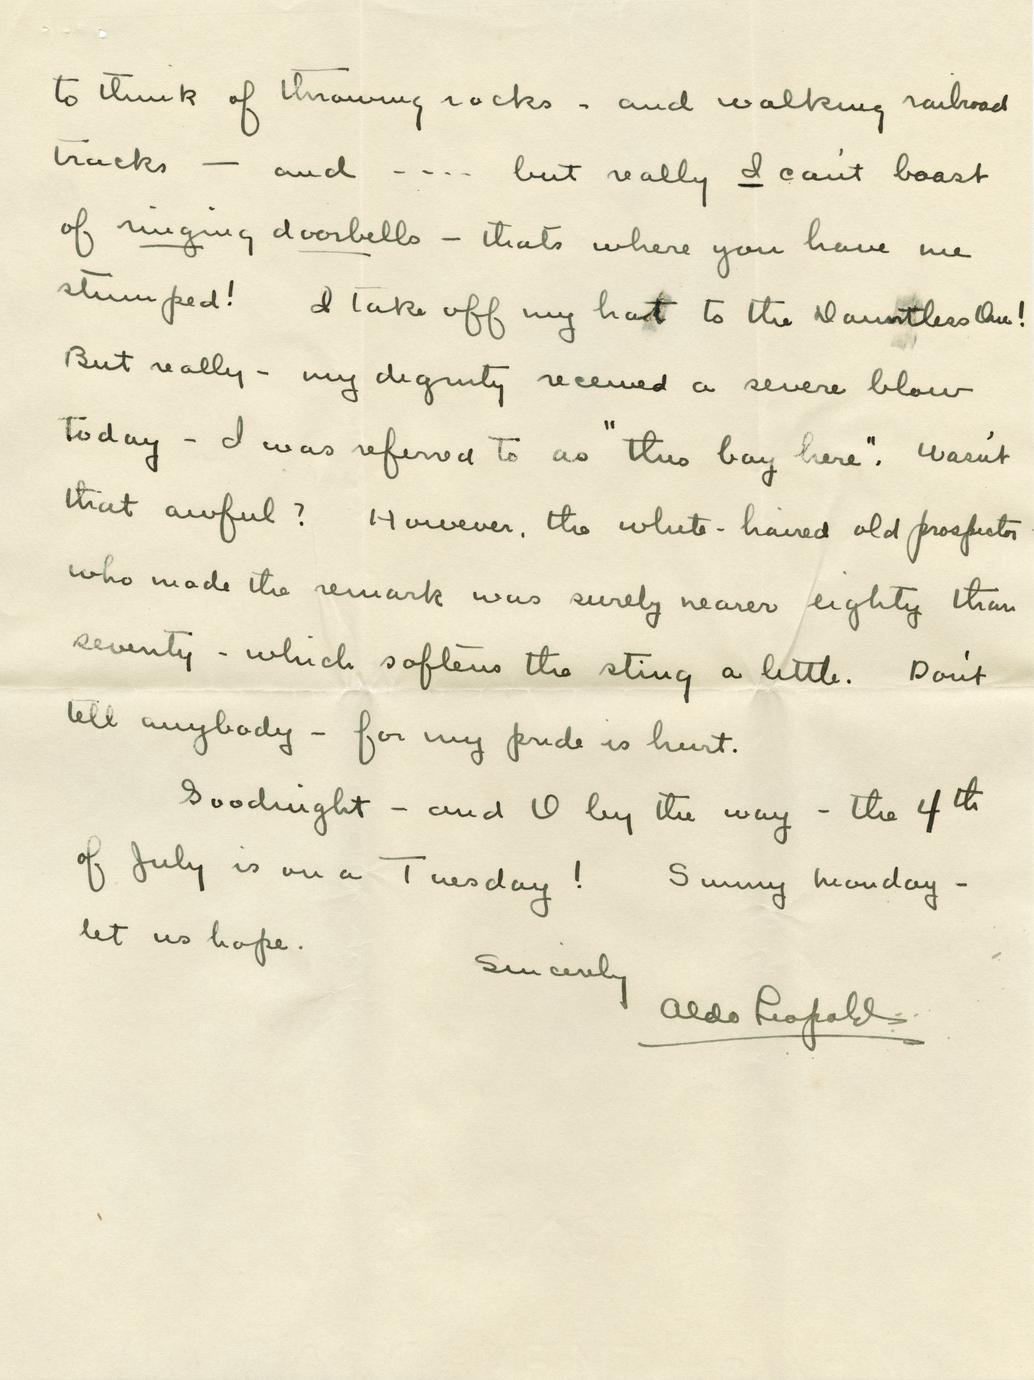 to think of throwing rocks - and walking railroad
tracks — and - - - - but really I can't boast
of ringing doorbells - thats where you have me
stumped! I take off my hat to the Dauntless One!
But really - my dignity received a severe blow
today - I was referred to as "this boy here". Wasn't
that awful? However, the white-haired old prospector
who made the remark was surely nearer eighty than
seventy - which softens the sting a little. Don't
tell anybody - for my pride is hurt.
Goodnight - and O by the way - the 4th
of July is on a Tuesday! Sunny Monday -
let us hope.
Sincerely
Aldo Leopold